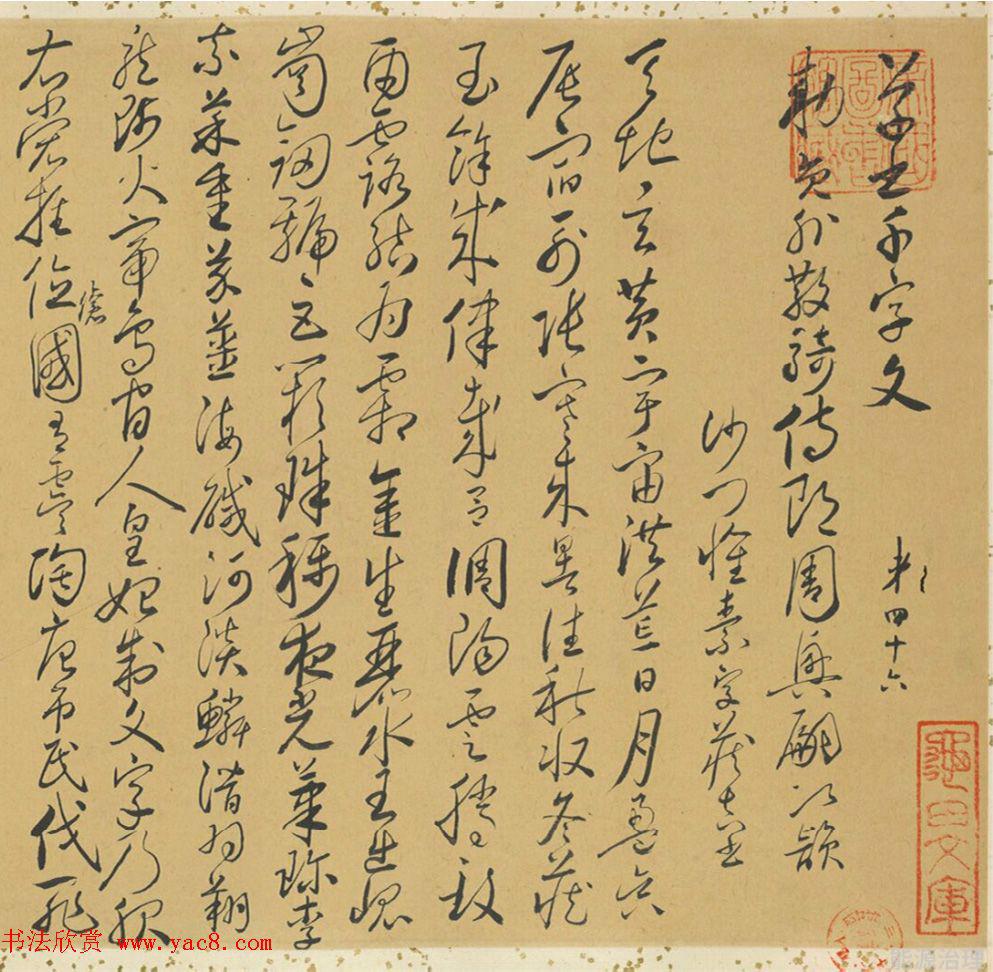 草書千字文
第四十六
勅員外散騎侍郎周興嗣次韻
沙门惟素字
天地玄黄宇宙洪荒日月盈昃
辰宿列張寒来暑往秋収冬蔵
閏餘成律歳呂調陽雲騰致
雨露結為霜金生麗水玉出崑
崗劔號巨闕珠稱夜光菓珎李
柰菜重芥薑海醎河淡鱗潜羽翔
龍師火帝鳥官人皇始制文字乃服
衣裳推位讓國有虞陶唐吊民伐罪
书法欣赏 www.yac8.com
能源治理